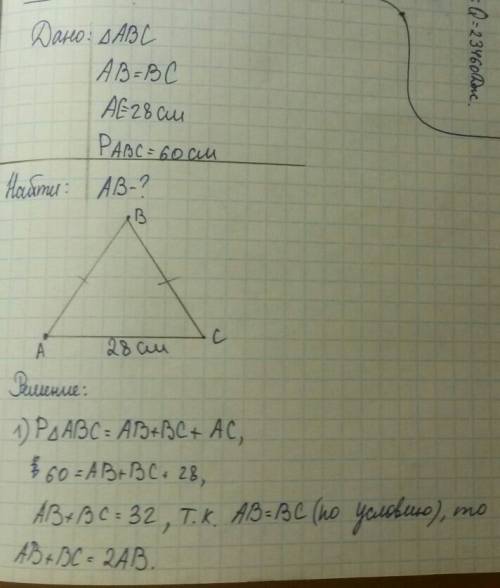 Дано: △ABC
AB=BC
AC=28см
PABC=60см
Найти: AB-?
B
A
28см
C
Решение:
1) P△ABC=AB+BC+AC,
60=AB+BC+28,
AB+BC=32, т.к. AB=BC (по условию), то
AB+BC=2AB.
Q=23460Дж.